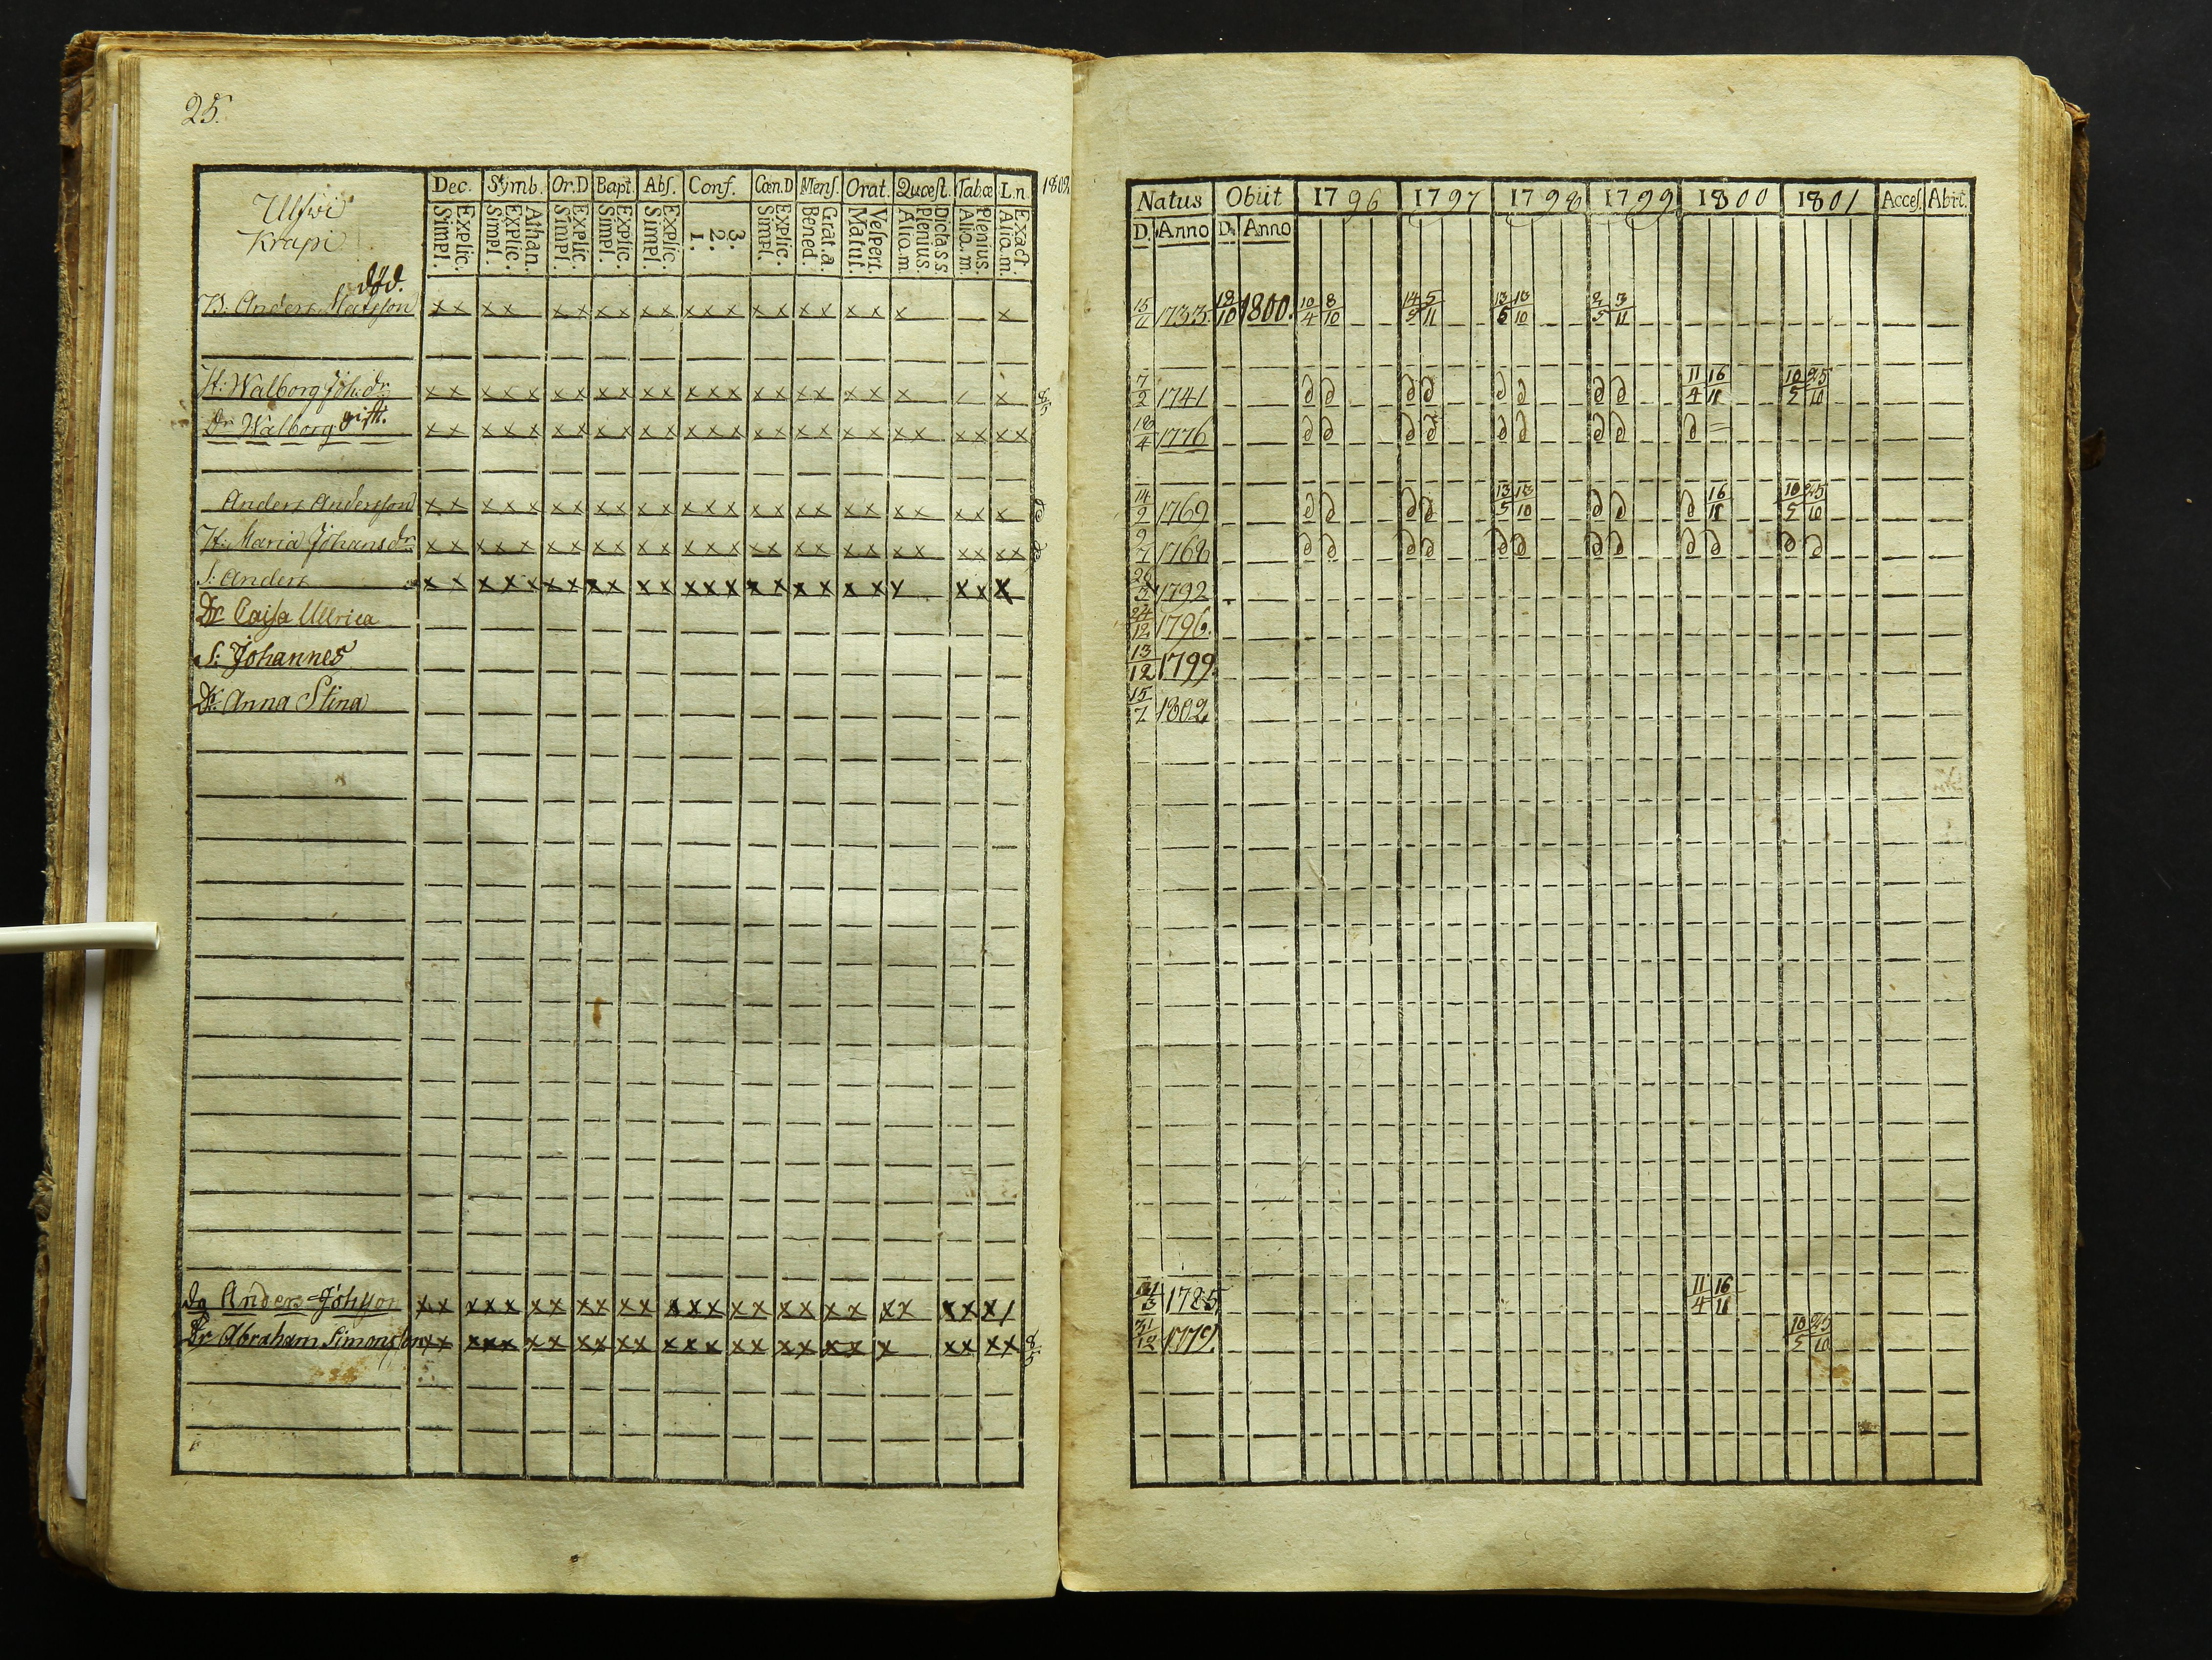 25.
Ulfwi
Krapi
Dec. Symb. Or.D Bapt. Abs. Conf. Cœn.D Mens. Orat. Quæst. Tabœ L.n. 1802
Explic. Simpl. Athan. Explic. Simpl. Explic. Simpl. Explic. Simpl. Explic. Simpl. 3. 2. 1. Explic. Simpl. Grat.a. Bened. Vespert. Matut. Dicta.s.s. Plenius. Aliq.m. Plenius. Aliq.m. Exact. Aliq.m.
död.
B: Anders Matsson x x x x x x x x x x x x x x x x x x x x x x
H: Walborg Joh:dr x x x x x x x x x x x x x x x x x x x x x x 8/5
Dr Walborg gift. x x x x x x x x x x x x x x x x x x x x x x x x x x
Anders Andersson x x x x x x x x x x x x x x x x x x x x x x x x x
H: Maria Johansdr x x x x x x x x x x x x x x x x x x x x x x x x x x
S: Anders x x x x x x x x x x x x x x x x x x x x x x x x
Dr Caisa Ullrica
S: Johannes
Dr: Anna Stina
Dg Anders Johsson x x x x x x x x x x x x x x x x x x x x x x x x x
Dr Abraham Simonsson x x x x x x x x x x x x x x x x x x x x x x x x x 8/5
Natus Obiit 1796 1797 1798 1799 1800 1801 Acces. Abit.
D. Anno D. Anno
15/11 1733 18/10 1800. 10/4 8/10 14/5 5/11 13/5 13/10 2/5 3/11
7/2 1741 11/4 16/11 10/5 25/10
18/4 1776
14/2 1769 13/5 13/10 16/11 10/5 25/10
9/7 1768
26/3 1792
24/12 1796.
13/12 1799.
15/7 1802
1785 11/4 16/11
31/12 1779. 10/5 25/10